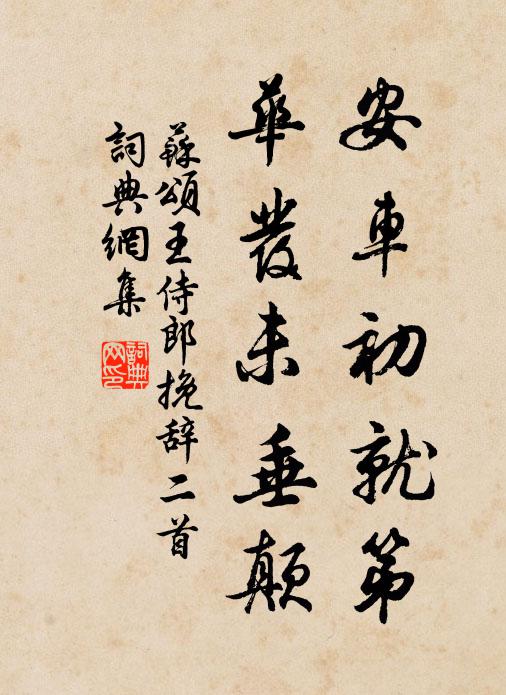 安車初就第
華發未垂顛
蘇頌王侍郎挽辞二首
詞典網集
詞典网印